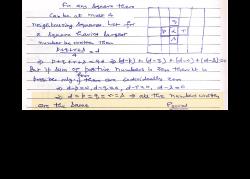 For any square there
can be at most 4
neighbouring squares. Let for
a square having largest
number be written then
p+q+r+s / 4 = d
⇒ p+q+r+s = 4d ⇒ (d-p) + (d-q) + (d-r) + (d-s) = 0
But if sum of positive numbers is zero then it is
possible only if there are individually zero
⇒ d-p=0, d-q=0, d-r=0, d-s=0
⇒ d=p=q=r=s ⇒ all the numbers written
are the same
Proved
q
p d r
s